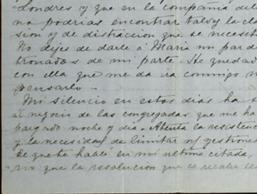 Londres y que en la compañía de l
na podrías encontrar tal y la cla
sión y de distracción que se necesit
No dejes de darle á María un par de
tronadas de mi parte. Se quedad
con ella que me da ira conmigo
pensarlo.
Mi silencio en estos días ha s
el negocio de las congregadas que me ha
pargado noche y día. Abierta la resistenc
y la necesidad de limitar mi gestiones
lo que ha hace en mi última citada,
no que la resolución que es recaba se